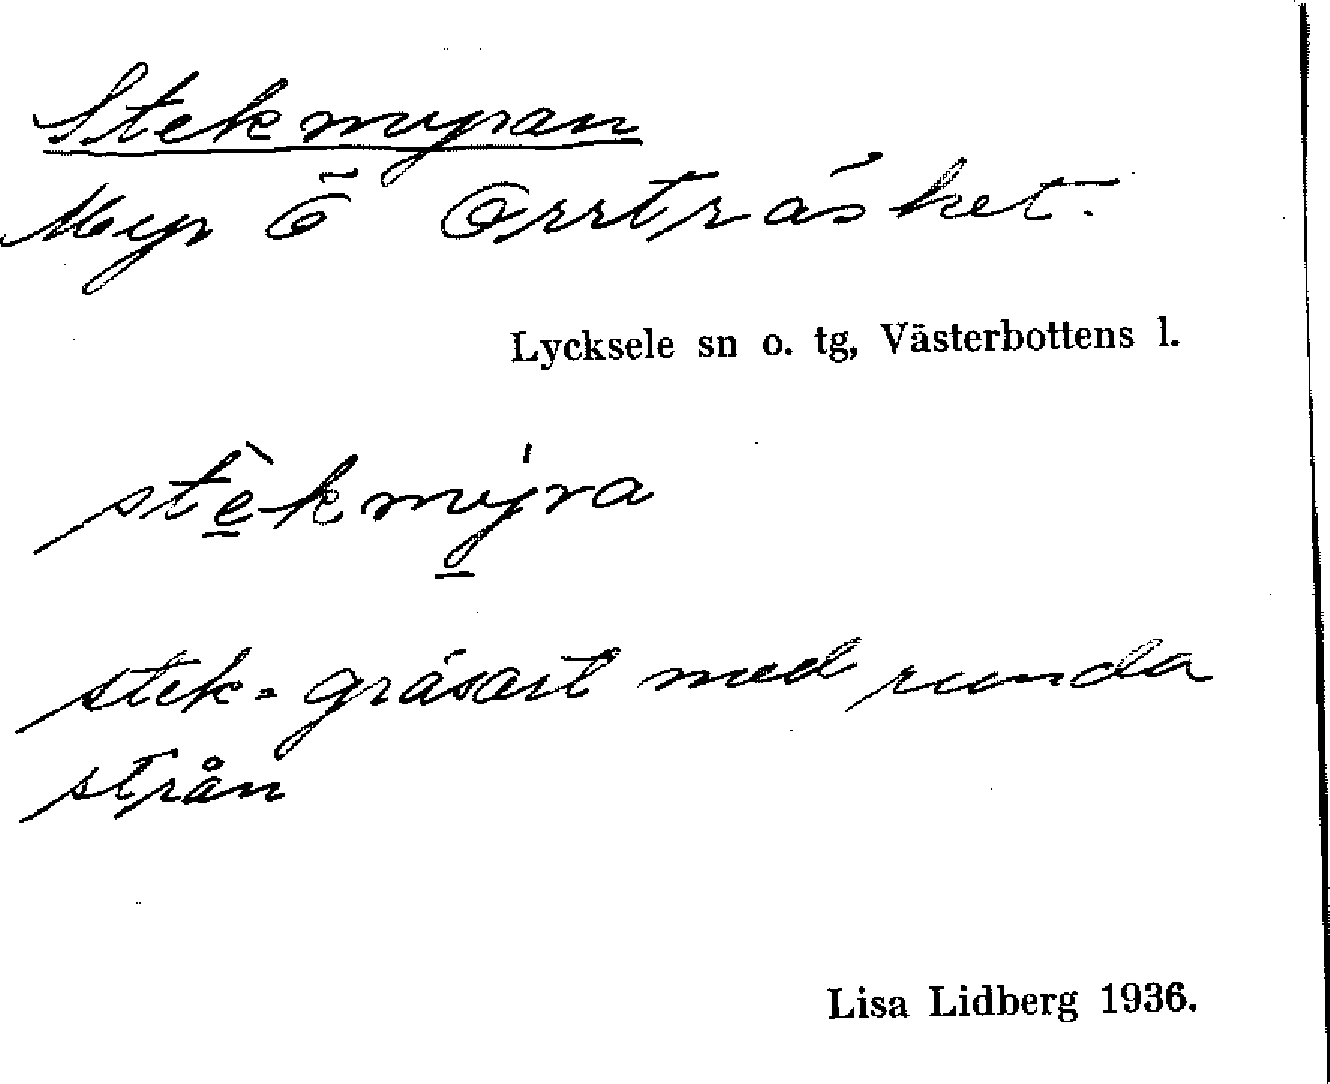 Stekmyran
Myr Ö Orrträsket.
Lycksele sn o. tg, Västerbottens l.
stè̱kmý̱ra
stek = gräsart med runda
strån
Lisa Lidberg 1936.